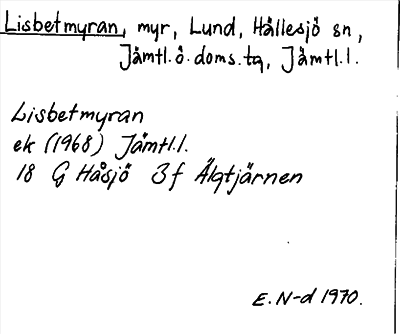 Lisbetmyran, myr, Lund, Hållesjö sn,
Jämtl.ö.doms.tg, Jämtl.l.
Lisbetmyran
ek (1968) Jämtl.l.
18 G Håsjö 3f Älgtjärnen
E. N-d 1970.